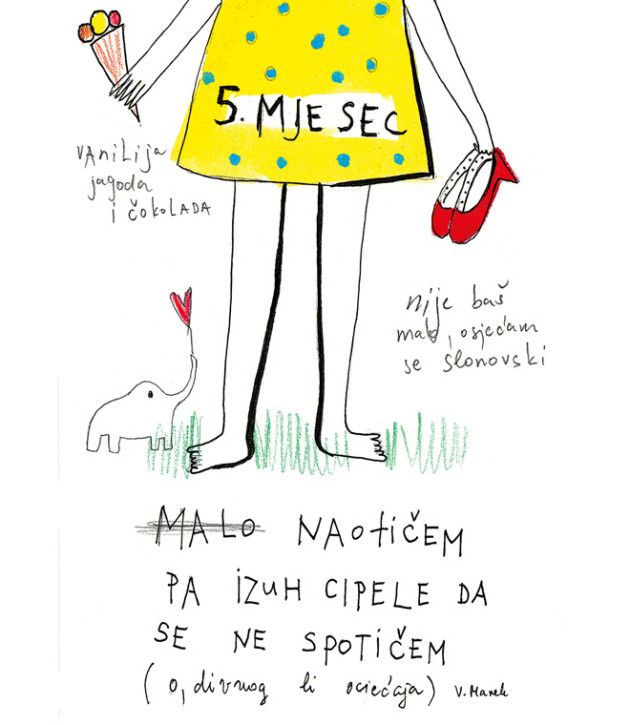 5. MJESEC
vanilija
jagoda
i čokolada
nije baš
malo, osjećam
se slonovski
MALO NAOTIČEM
PA IZUH CIPELE DA
SE NE SPOTIČEM
(o, divnog li osjećaja) V. Marek